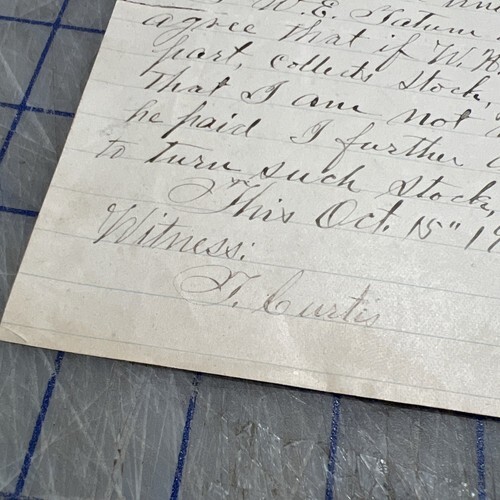 W. E. Tatum
agree that if W. H
part, collects stock,
that I am not
he paid I further
to turn such stock,
This Oct. 15" 1
Witness:
T. Curtis